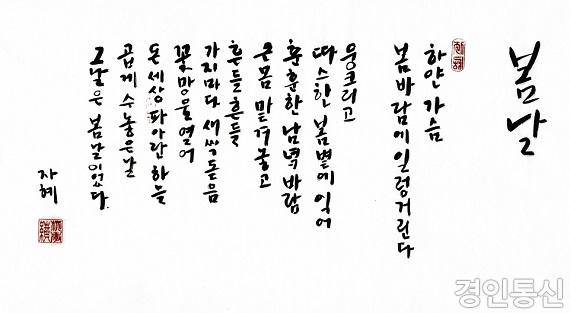 봄날
하얀 가슴
봄바람에 일렁거린다
웅크리고
따스한 봄볕에 익어
훈훈한 남녘 바람
온몸 맡겨 놓고
흔들흔들
가지마다 새싹 돋음
꽃망울 열어
온 세상 파아란 하늘
곱게 수놓은 날
그날은 봄날이었다.
자혜
경인통신